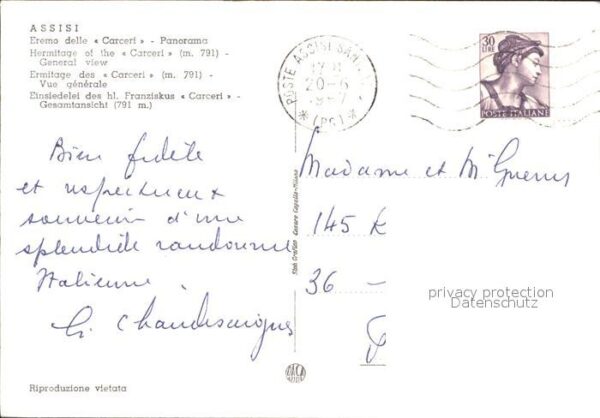 ASSISI
Eremo delle « Carceri » - Panorama
Hermitage of the « Carceri » (m. 791) -
General view
Ermitage des « Carceri » (m. 791) -
Vue générale
Einsiedelei des hl. Franziskus « Carceri » -
Gesamtansicht (791 m.)
POSTE ASSISI
20-6
(PG)
30
LIRE
POSTE ITALIANE
Bien fidèle
et respectueux
souvenir d'une
splendide randonnée
Italienne.
Madame et Mr
145 R
36 -
privacy protection
Datenschutz
Stab. Grafico Cesare Capello - Milano
Riproduzione vietata